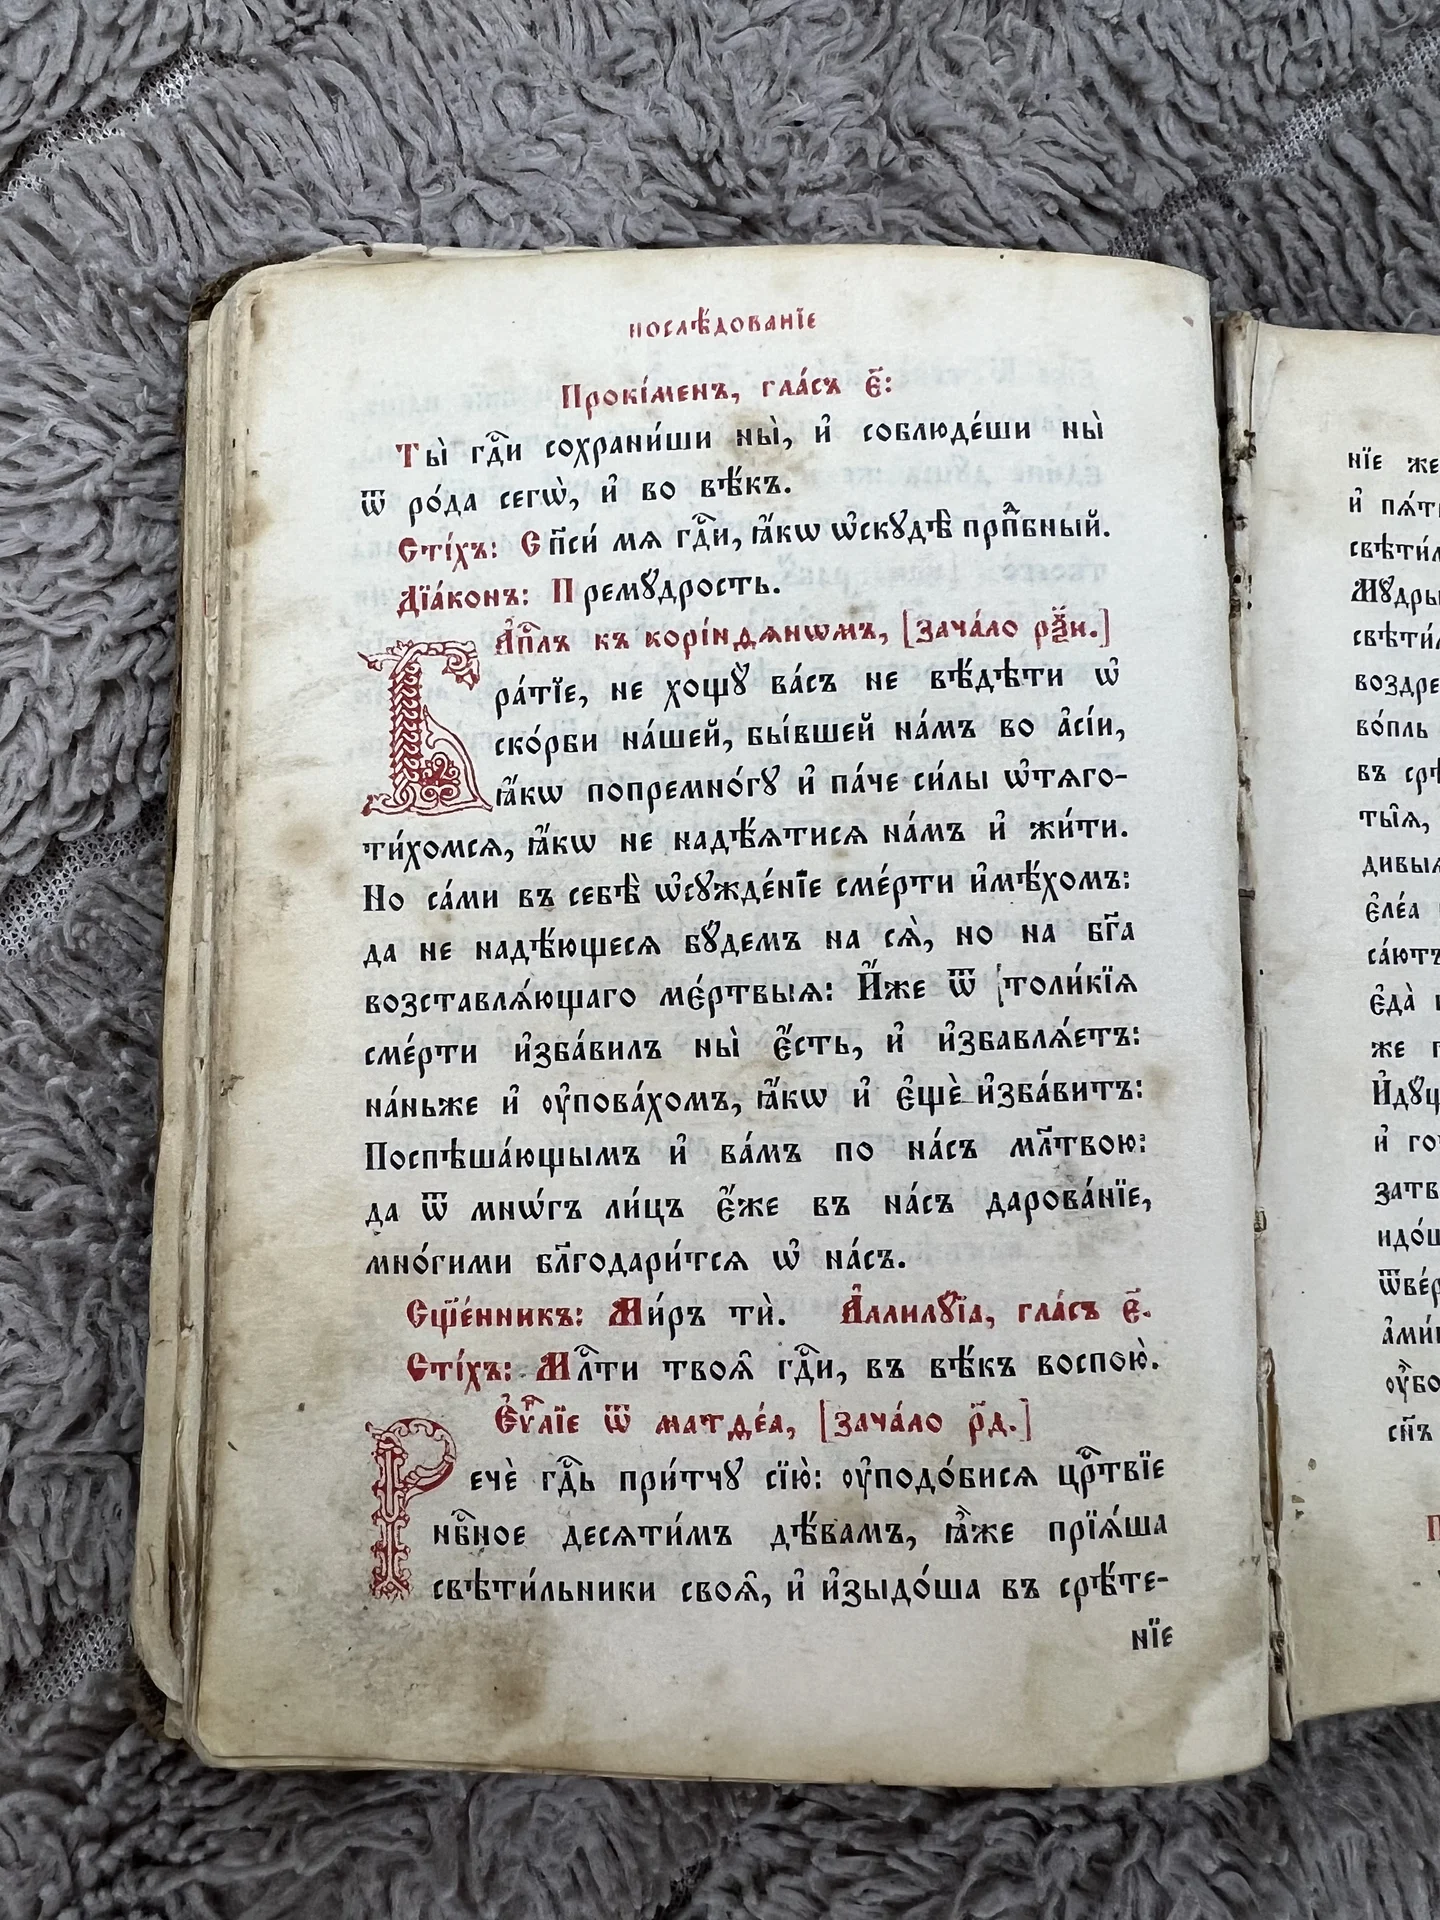 послѣ́дованїе
Прокі́менъ, гла́съ є҃:
Ты̀ гдⷭ҇и сохрани́ши ны̀, и҆ соблюде́ши ны̀
ѿ ро́да сегѡ̀, и҆ во вѣ́къ.
Сті́хъ: Сп҃си́ мѧ гдⷭ҇и, ꙗ҆́кѡ ѡ҆скꙋдѣ̀ прпⷣбный.
Дїа́конъ: Премꙋ́дрость.
А҆пⷭ҇лъ къ корі́нѳѧнѡмъ, [зача́ло рѯ҃и.]
Бра́тїе, не хощꙋ̀ ва́съ не вѣ́дѣти ѡ҆
ско́рби на́шей, бы́вшей на́мъ во а҆сі́и,
ꙗ҆́кѡ попремно́гꙋ и҆ па́че си́лы ѡ҆тѧго-
ти́хомсѧ, ꙗ҆́кѡ не надѣ́ѧтисѧ на́мъ и҆ жи́ти.
Но са́ми въ себѣ̀ ѡ҆сꙋжде́нїе сме́рти и҆мѣ́хомъ:
да не надѣ́ющесѧ бꙋ́демъ на сѧ̀, но на бг҃а
возставлѧ́ющаго ме́ртвыѧ: И҆́же ѿ толи́кїѧ
сме́рти и҆зба́вилъ ны̀ є҆́сть, и҆ и҆збавлѧ́етъ:
на́ньже и҆ ᲂу҆пова́хомъ, ꙗ҆́кѡ и҆ є҆щѐ и҆зба́витъ:
Поспѣша́ющымъ и҆ ва́мъ по на́съ мл҃твою:
да ѿ мнѡ́гъ ли́цъ є҆́же въ на́съ дарова́нїе,
мно́гими бл҃годари́тсѧ ѡ҆ на́съ.
Сщ҃е́нникъ: Ми́ръ тѝ. А҆ллилꙋ́їа, гла́съ є҃.
Сті́хъ: Млⷭ҇ти твоѧ̑ гдⷭ҇и, въ вѣ́къ воспою̀.
Є҆ѵⷢ҇лїе ѿ матѳе́а, [зача́ло р҃д.]
Речѐ гдⷭ҇ь при́тчꙋ сїю̀: ᲂу҆подо́бисѧ црⷭ҇твїе
нбⷭ҇ное десѧти́мъ дѣ́вамъ, ꙗ҆̀же прїѧ́ша
свѣти́льники своѧ̑, и҆ и҆зыдо́ша въ срѣ́те-
нїе
нїе же
и҆ пѧ́т
свѣти́л
Мꙋ́дры
свѣти́л
воздре
во́пль
въ срѣ
ты̑ѧ,
дивыѧ
є҆ле́а
са́ютъ
є҆да̀
же
И҆дꙋ́щ
и҆ го
затв
идо́ш
ѿве́р
а҆ми́н
ᲂу҆̀бо
сн҃ъ